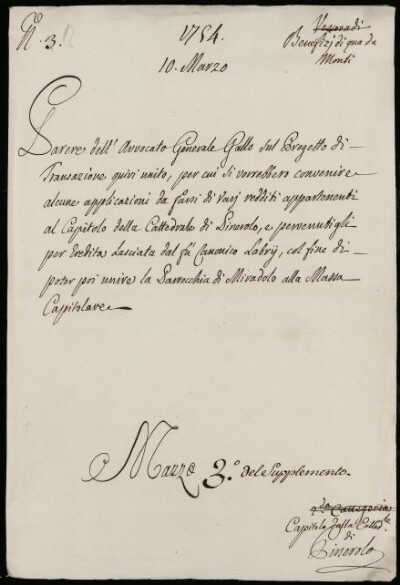 N.º 3.
1754.
10. Marzo
Vescovadi
Benefizj di qua da
Monti
Parere dell' Avvocato Generale Gallo sul Progetto di
Transazione quivi unito, per cui si vorrebbero convenire
alcune applicazioni da farsi di varj redditi appartenenti
al Capitolo della Cattedrale di Pinerolo, e pervenutigli
per Eredità lasciata dal fù Canonico Labrij, col fine di
poter poi unire la Parrocchia di Miradolo alla Massa
Capitolare
Mazzo 3.º del Supplemento.
Categoria
Capitolo della Catted.le
di
Pinerolo